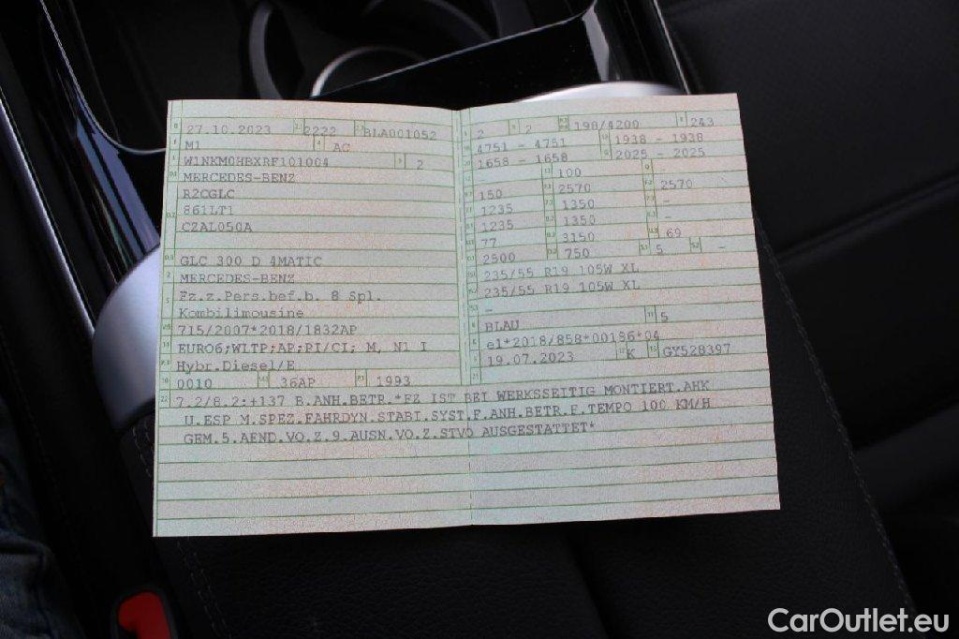 27.10.2023 2222 BLA001052
M1 AC
W1NKM0HBXRF101004 2
MERCEDES-BENZ
R2CGLC
861LT1
CZAL050A
GLC 300 D 4MATIC
MERCEDES-BENZ
Fz.z.Pers.bef.b. 8 Spl.
Kombilimousine
715/2007*2018/1832AP
EURO6;WLTP;AP;PI/CI; M, N1 I
Hybr.Diesel/E
0010 36AP 1993
2 2 198/4200 243
4751 - 4751 1938 - 1938
1658 - 1658 2025 - 2025
100 -
150 2570 2570
1235 1350 -
1235 1350 -
77 3150 69
2500 750 5 -
235/55 R19 105W XL
235/55 R19 105W XL
-
BLAU 5
e1*2018/858*00186*04
19.07.2023 K GY528397
22 7.2/8.2:+137 B.ANH.BETR.*FZ IST BEI WERKSSEITIG MONTIERT.AHK
U.ESP M.SPEZ.FAHRDYN.STABI.SYST.F.ANH.BETR.F.TEMPO 100 KM/H
GEM.5.AEND.VO.Z.9.AUSN.VO.Z.STVO AUSGESTATTET*
CarOutlet.eu